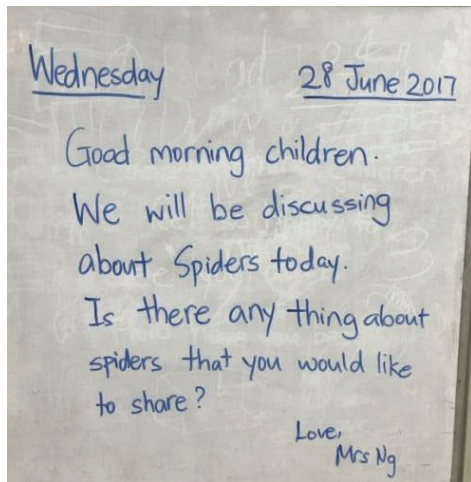 Wednesday 28 June 2017
Good morning children.
We will be discussing
about Spiders today.
Is there any thing about
spiders that you would like
to share?
Love,
Mrs Ng